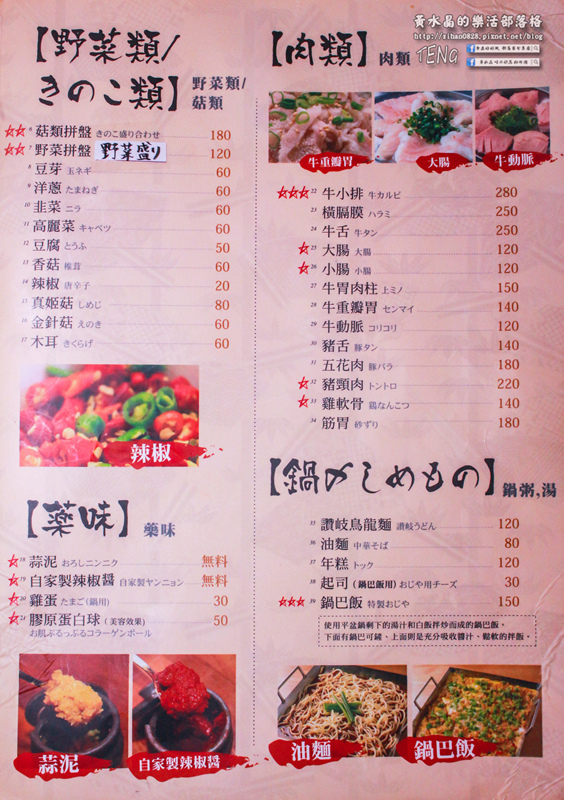 黃水晶的樂活部落格
http://xihan0828.pixnet.net/blog
TENG
【野菜類/
きのこ類】
野菜類/
菇類
6 菇類拼盤 きのこ盛り合わせ 180
7 野菜拼盤 野菜盛り 120
8 豆芽 玉ネギ 60
9 洋蔥 たまねぎ 60
10 韭菜 ニラ 60
11 高麗菜 キャベツ 60
12 豆腐 とうふ 50
13 香菇 椎茸 60
14 辣椒 唐辛子 20
15 真姬菇 しめじ 80
16 金針菇 えのき 60
17 木耳 きくらげ 60
辣椒
【薬味】
藥味
18 蒜泥 おろしニンニク 無料
19 自家製辣椒醬 自家製ヤンニョン 無料
20 雞蛋 たまご(鍋用) 30
21 膠原蛋白球 (美容效果) 50
お肌ぷるっぷるコラーゲンボール
蒜泥
自家製辣椒醬
【肉類】
肉類
牛重瓣胃
大腸
牛動脈
22 牛小排 牛カルビ 280
23 橫膈膜 ハラミ 250
24 牛舌 牛タン 250
25 大腸 大腸 120
26 小腸 小腸 120
27 牛胃肉柱 上ミノ 150
28 牛重瓣胃 センマイ 140
29 牛動脈 コリコリ 120
30 豬舌 豚タン 140
31 五花肉 豚バラ 180
32 豬頸肉 トントロ 220
33 雞軟骨 鶏なんこつ 140
34 筋胃 砂ずり 180
【鍋〆しめもの】
鍋粥,湯
35 讚岐烏龍麵 讃岐うどん 120
36 油麵 中華そば 80
37 年糕 トック 120
38 起司 (鍋巴飯用) おじや用チーズ 30
39 鍋巴飯 特製おじや 150
使用平盆鍋剩下的湯汁和白飯拌炒而成的鍋巴飯。
下面有鍋巴可鏟、上面則是充分吸收醬汁、鬆軟的拌飯。
油麵
鍋巴飯